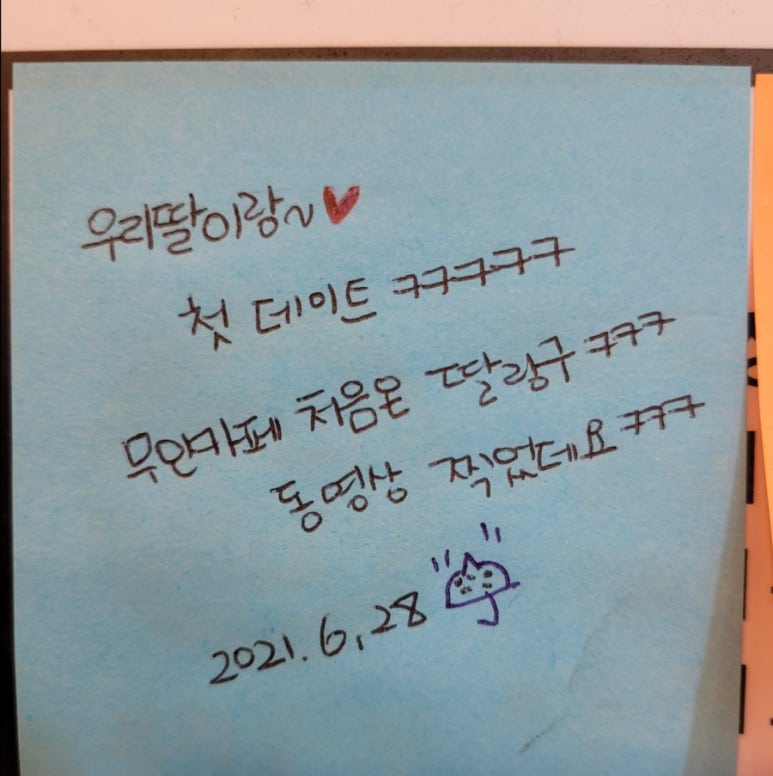 우리딸이랑~♥
첫 데이트 ㅋㅋㅋㅋㅋ
무인카페 처음온 딸랑구 ㅋㅋㅋ
동영상 찍었데요 ㅋㅋㅋ
2021.6.28